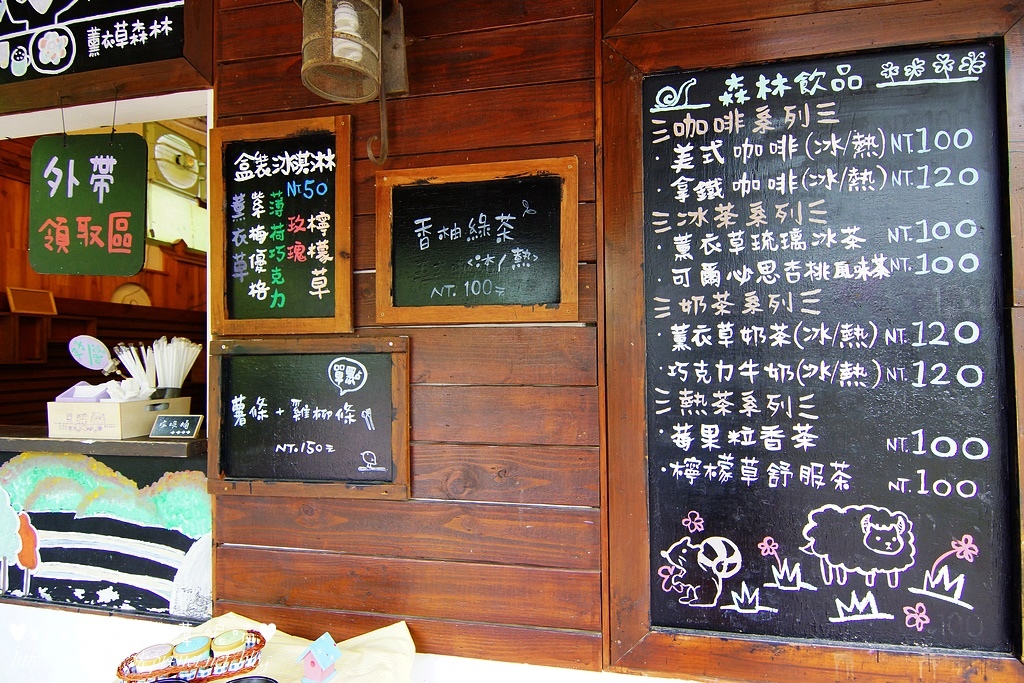 薰衣草森林
外帶
領取區
盒裝冰淇淋
NT.50
薰衣草
紫梅優格
薄荷巧克力
玫瑰
檸檬草
香柚綠茶
<冰/熱>
NT. 100元
單點
薯條+雞柳條
NT.150元
森林飲品
咖啡系列
·美式咖啡(冰/熱) NT.100
·拿鐵咖啡(冰/熱) NT.120
冰茶系列
·薰衣草琉璃冰茶 NT.100
·可爾必思杏桃風味茶 NT.100
奶茶系列
·薰衣草奶茶(冰/熱) NT.120
·巧克力牛奶(冰/熱) NT.120
熱茶系列
·莓果粒香茶 NT.100
·檸檬草舒服茶 NT.100